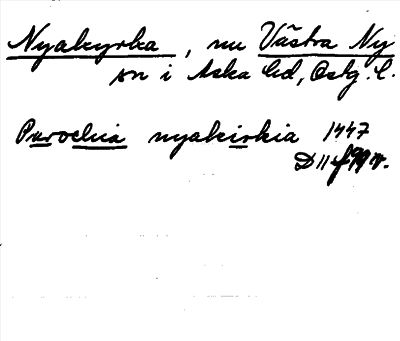 Nyakyrka, nu Västra Ny
sn i Aska hd, Östg. l.
Parochia nyakirkia 1447
D 11 f